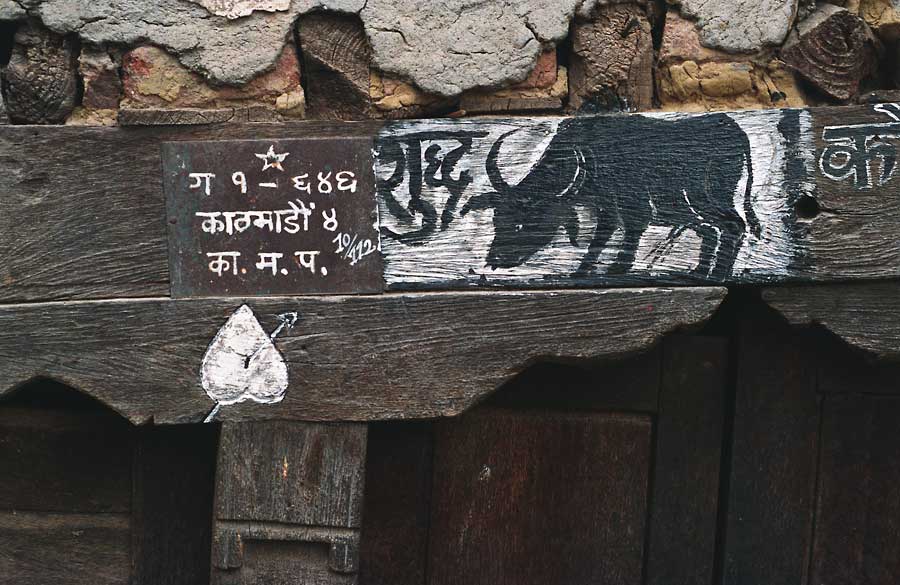 ग १ - ६४६
काठमाडौं ४
का. म. प.
10/412
शुद्ध